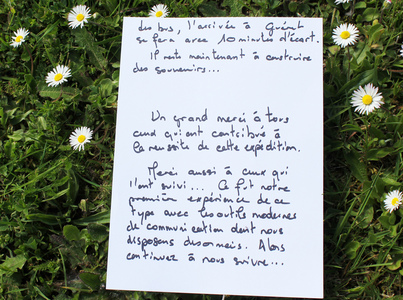 des bus, l'arrivée à Guéret
se fera avec 10 minutes d'écart.
Il reste maintenant à construire
des souvenirs...
Un grand merci à tous
ceux qui ont contribué à
la réussite de cette expédition.
Merci aussi à ceux qui
l'ont suivi... Ce fut notre
première expérience de ce
type avec les outils modernes
de communication dont nous
disposons désormais. Alors
continuez à nous suivre...